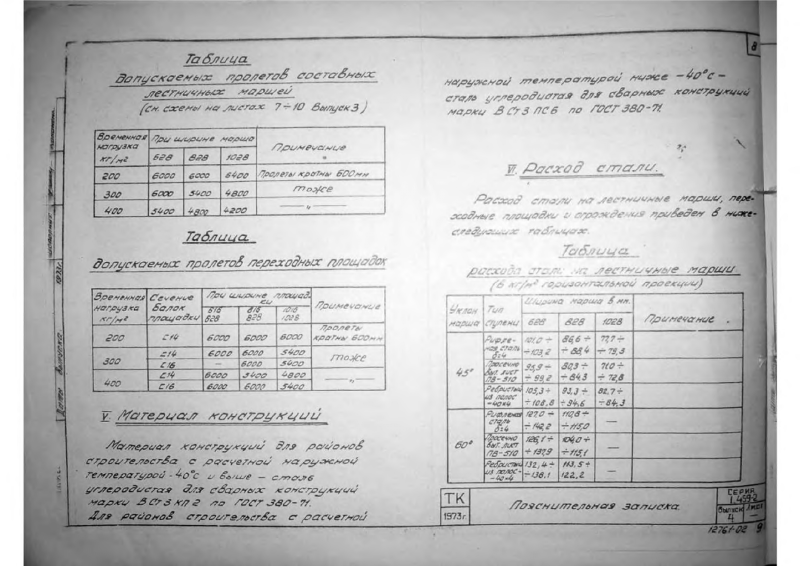 Таблица
допускаемых пролетов составных
лестничных маршей
(см. схемы на листах 7÷10 Выпуск 3)
Временная нагрузка кг/м² При ширине марша Примечание
628 828 1028
200 6000 6000 6400 Пролеты кратны 600мм
300 6000 5400 4800 то же
400 5400 4800 4200 —"—
Таблица
допускаемых пролетов переходных площадок
Временная нагрузка кг/м² Сечение балок площадки При ширине площадки Примечание
816 816 1016
828 828 1028
200 С14 6000 6000 6000 Пролеты кратны 600мм
300 С14 6000 6000 5400 то же
С16 — 6000 5400
400 С14 6000 5400 4800 —"—
С16 6000 6000 5400
V. Материал конструкций
Материал конструкций для районов
строительства с расчетной наружной
температурой -40°с и выше – сталь
углеродистая для сварных конструкций
марки В Ст 3 кп 2 по ГОСТ 380-71.
Для районов строительства с расчетной
8
наружной температурой ниже -40°с –
сталь углеродистая для сварных конструкций
марки В Ст 3 ПС 6 по ГОСТ 380-71.
VI. Расход стали.
Расход стали на лестничные марши, пере-
ходные площадки и ограждения приведен в ниже-
следующих таблицах.
Таблица
расхода стали на лестничные марши
(в кг/м² горизонтальной проекции)
Уклон марша Тип ступени Ширина марша в мм. Примечание.
628 828 1028
45° Рифленая сталь 101,0 ÷ 86,6 ÷ 77,7 ÷
÷ 103,2 ÷ 88,4 ÷ 79,3
Просечно выт. лист ПВ-510 95,9 ÷ 80,9 ÷ 71,0 ÷
÷ 99,2 ÷ 84,3 ÷ 72,8
Ребристый из полос -40×4 105,3 ÷ 93,3 ÷ 82,7 ÷
÷ 108,8 ÷ 94,6 ÷ 84,3
60° Рифленая сталь 127,0 ÷ 110,8 ÷ —
÷ 142,2 ÷ 115,0
Просечно выт. лист ПВ-510 126,1 ÷ 104,0 ÷ —
÷ 137,9 ÷ 115,1
Ребристый из полос -40×4 132,4 ÷ 113,5 ÷ —
÷ 138,1 122,2
ТК
1973г.
Пояснительная записка.
Серия
1.459-2
Выпуск Лист
4 —
12761-02 9